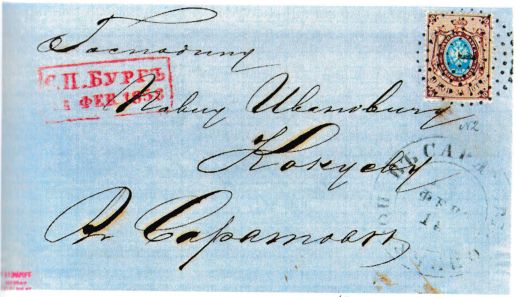 Господину
С.П.БУРГЪ
ФЕВ.1858
Павлу Ивановичу
№2
Кокуеву
ВЪ САРА
ФЕВ
Въ Саратовъ